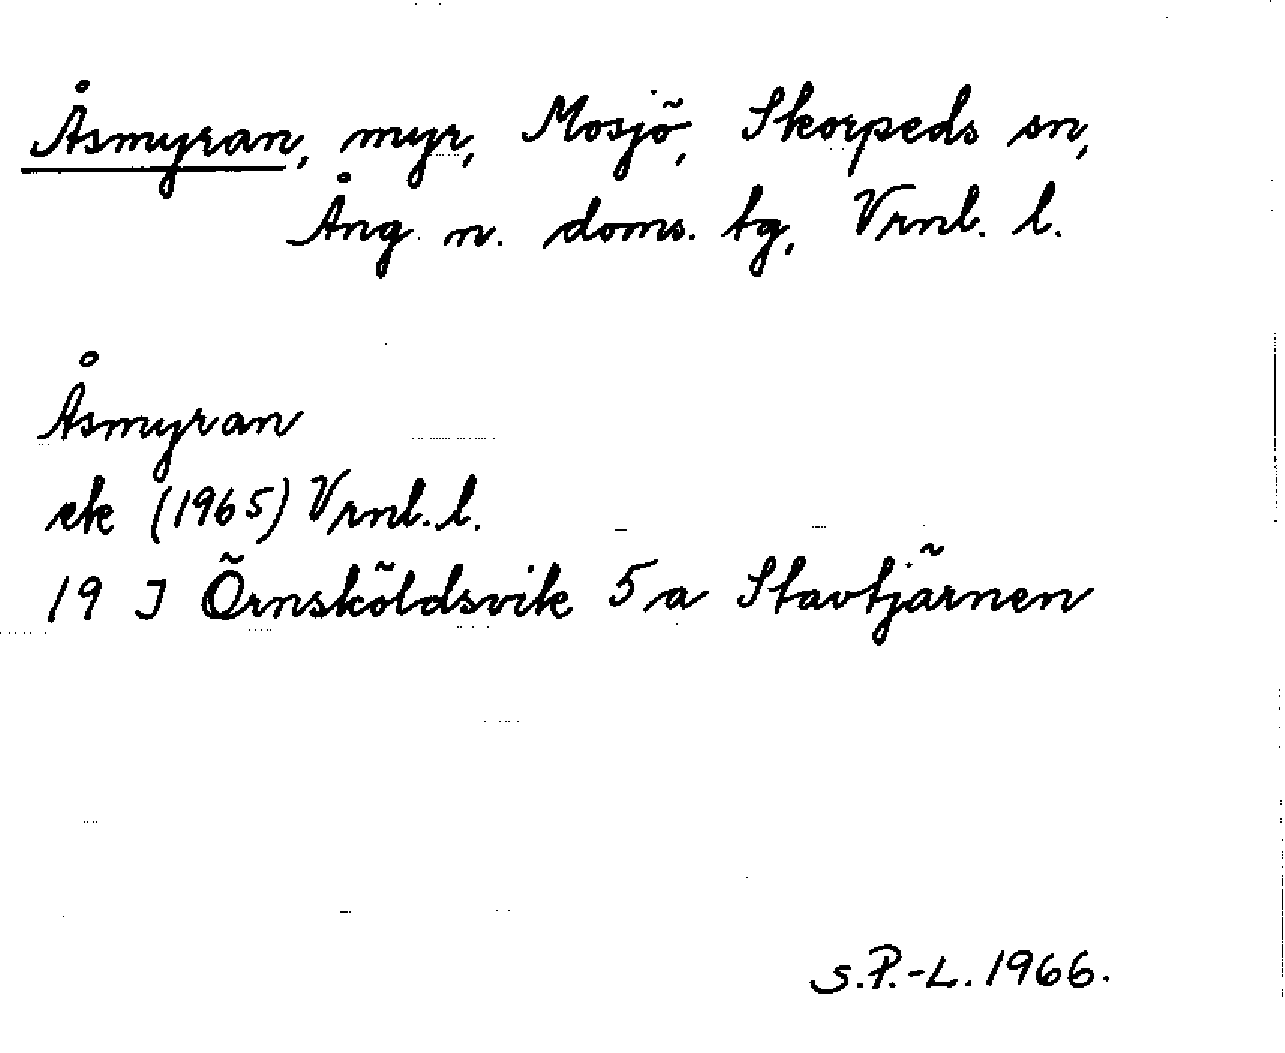 Åsmyran, myr, Mosjö, Skorpeds sn,
Ång. n. doms. tg, Vrnl. l.
Åsmyran
ek (1965) Vrnl. l.
19 J Örnsköldsvik 5 a Stavtjärnen
S.P.-L. 1966.